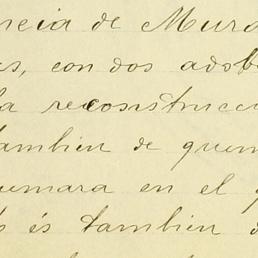 ncia de Mura
s, con dos adob
la reconstrucc
tambien de quem
uemara en el
s és tambien